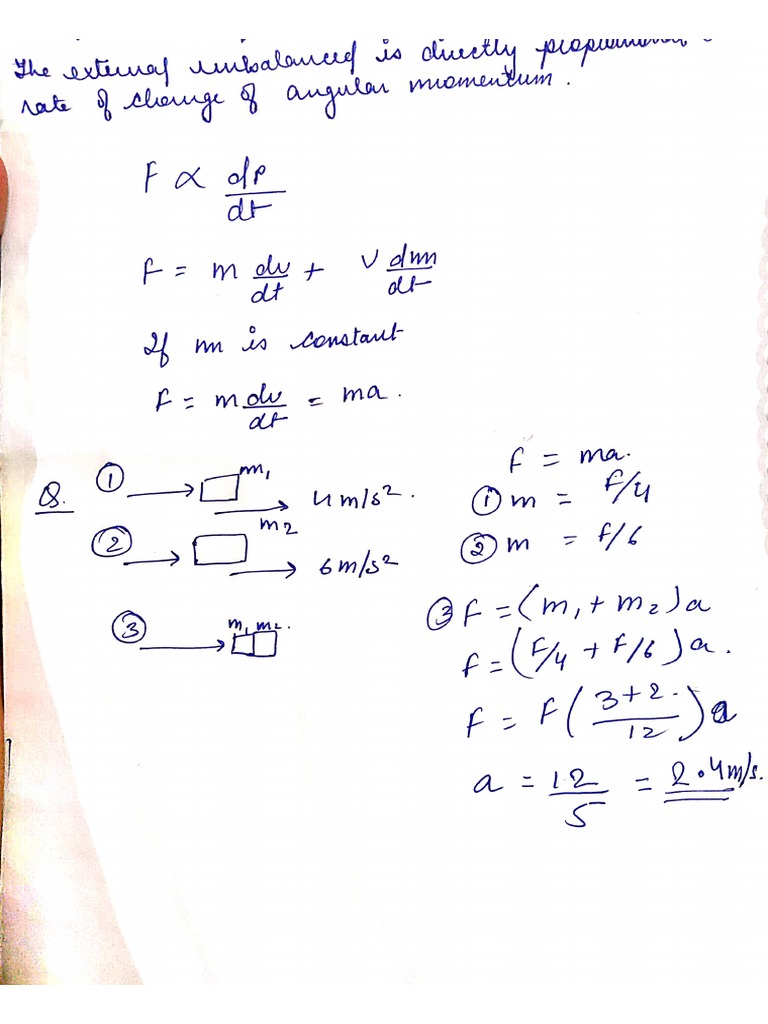 The external unbalanced is directly
rate of change of angular momentum.
F ∝ dp/dt
F = m dv/dt + v dm/dt
If m is constant
F = m dv/dt = ma.
Q. ① m₁ 4m/s².
② m₂ 6m/s²
③ m₁ m₂.
F = ma.
① m = F/4
② m = F/6
③ F = (m₁ + m₂)a
F = (F/4 + F/6)a.
F = F(3+2/12)a
a = 12/5 = 2.4m/s.